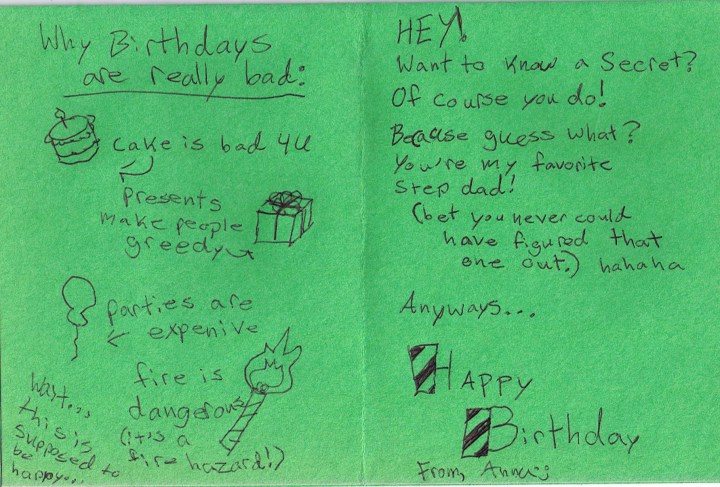 Why Birthdays
are really bad:
cake is bad 4U
presents
make people
greedy
parties are
expenive
fire is
dangerous
(it's a
fire hazard!)
Wait...
this is
supposed to
be
happy...
HEY!
Want to know a Secret?
Of course you do!
Because guess what?
You're my favorite
step dad!
(bet you never could
have figured that
one out.) hahaha
Anyways...
HAPPY
Birthday
From, Anna :)